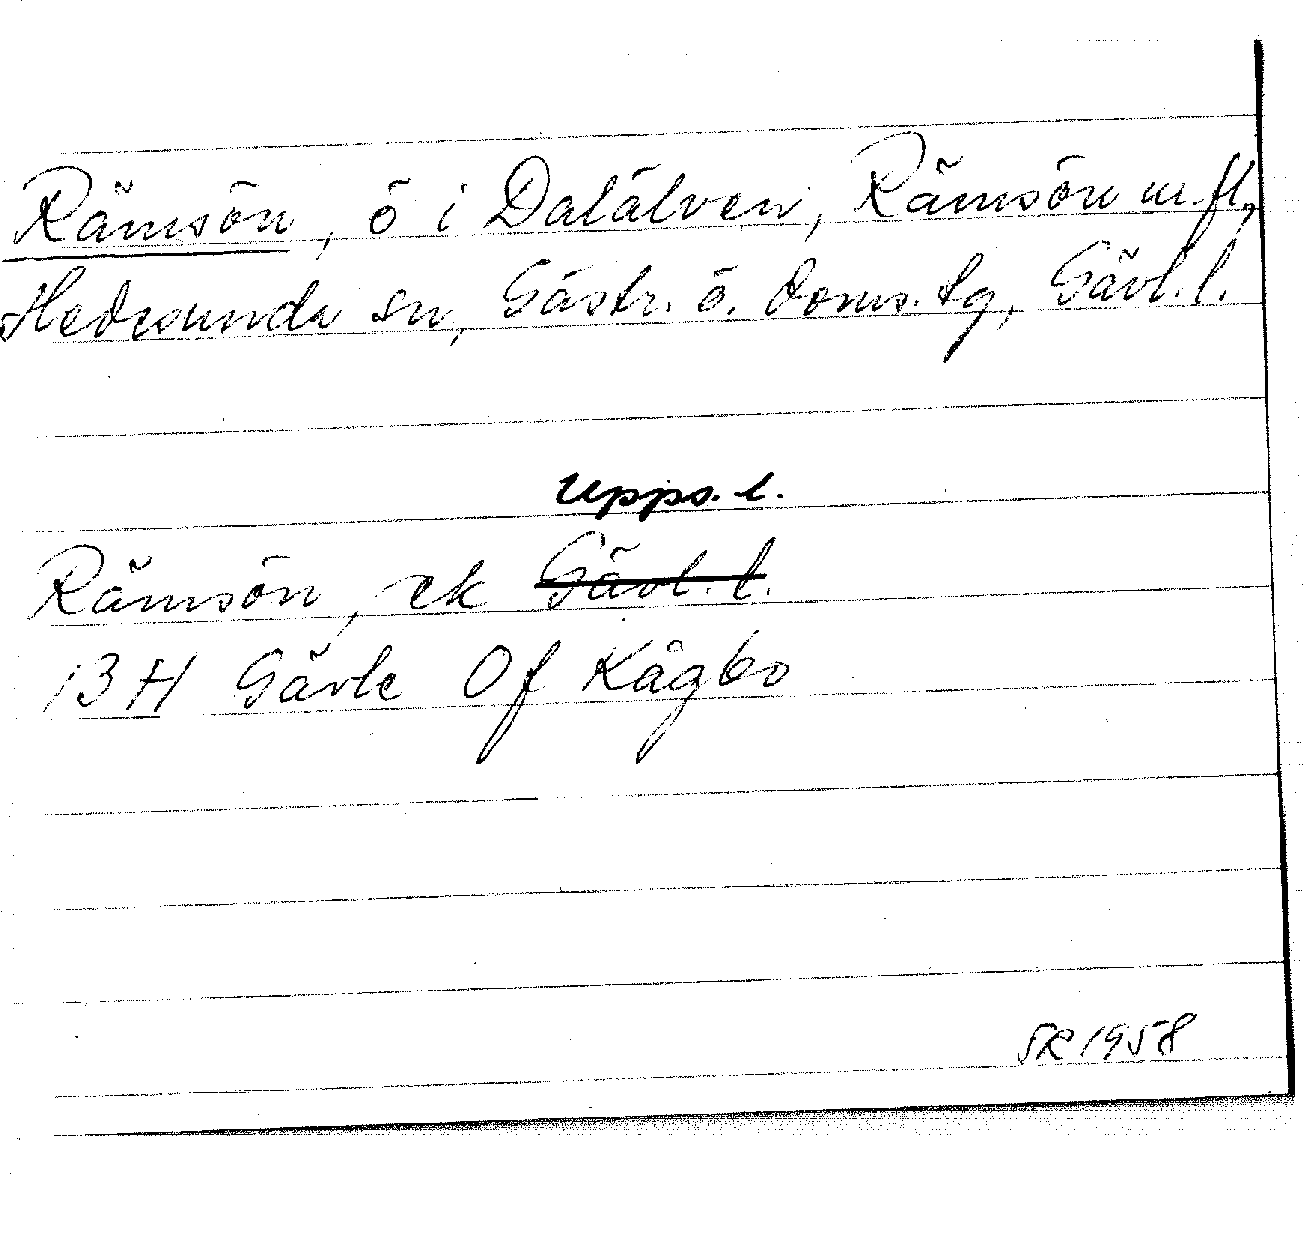 Rämsön, ö i Dalälven, Rämsön m.fl,
Hedesunda sn, Gästr. ö. doms. tg, Gävl. l.
Upps. l.
Rämsön, ek Gävl. l.
13 H Gävle Of Kågbo
SR 1958